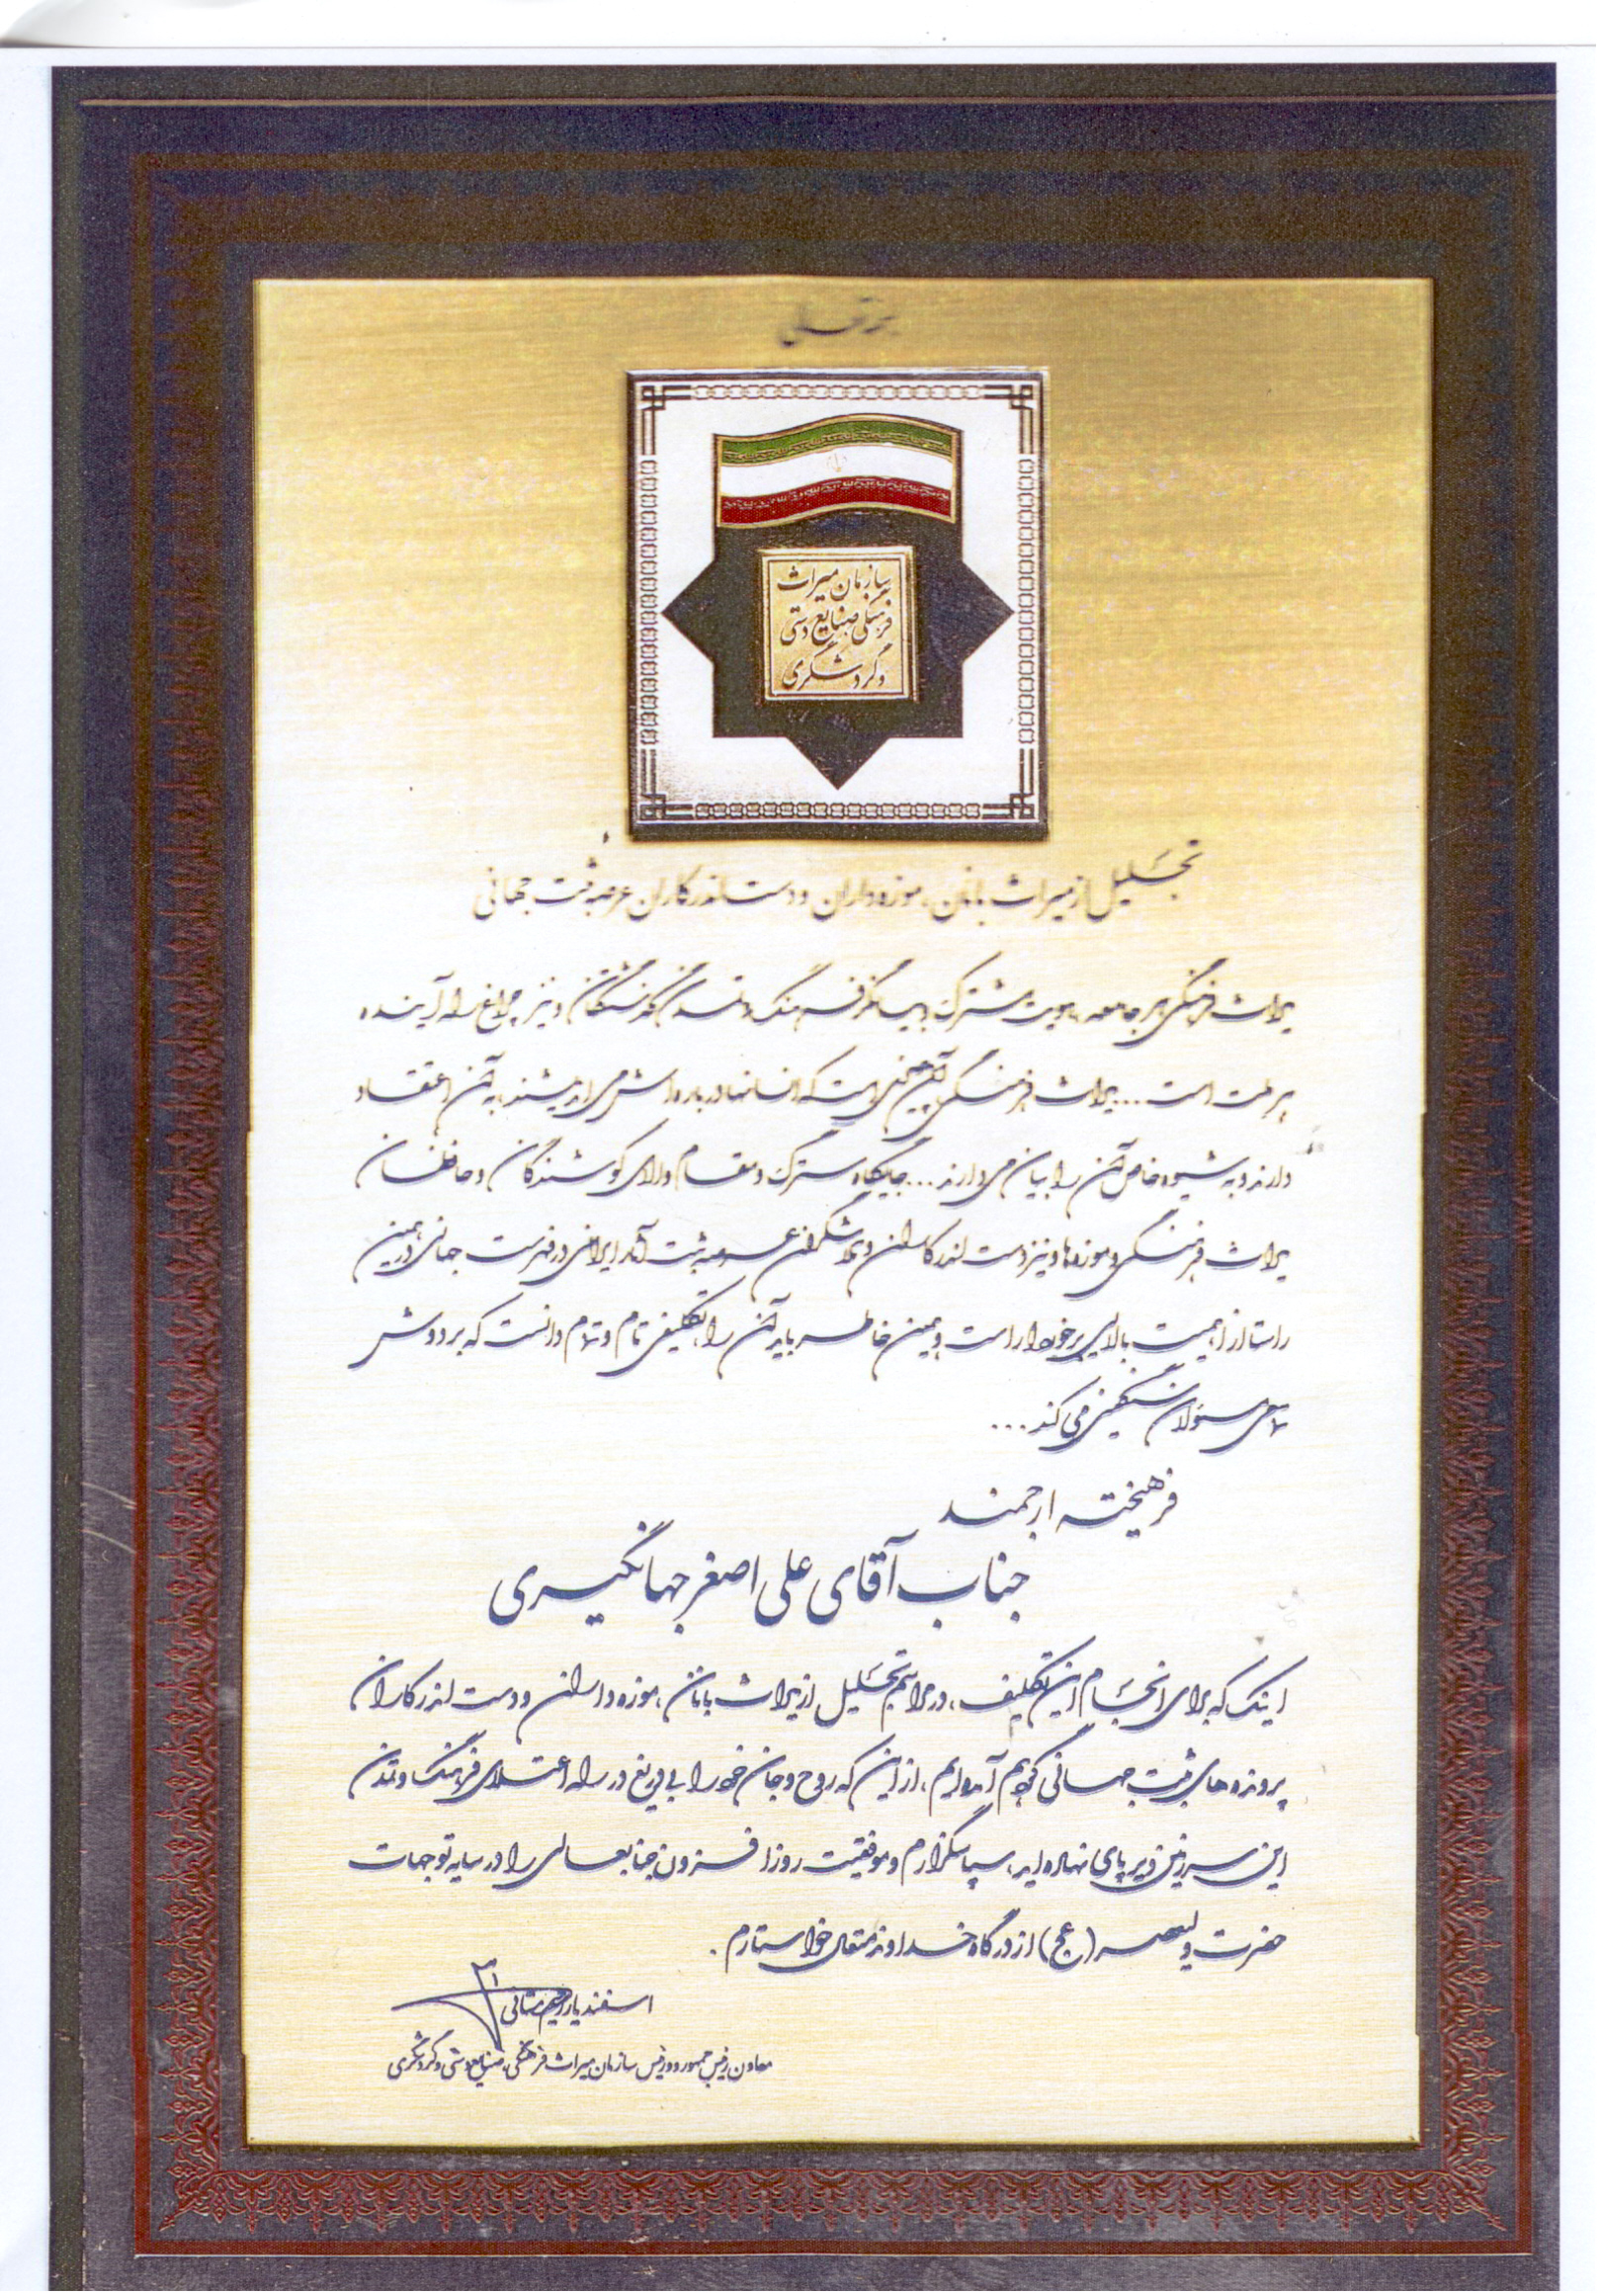 سازمان میراث
فرهنگی صنایع دستی
و گردشگری
تجلیل از میراث بانان، موزه داران و دست اندرکاران عرصه ثبت جهانی
میراث فرهنگی هر جامعه، هویت مشترک و بیانگر فرهنگ و تمدن گذشتگان و نیز چراغ راه آینده
هر ملت است... میراث فرهنگی آن چیزی است که انسانها درباره اش می اندیشند، به آن اعتقاد
دارند و به شیوه خاص آن را بیان می دارند... جایگاه سترگ و مقام والای کوشندگان و حافظان
میراث فرهنگی و موزه ها و نیز دست اندرکاران و تلاشگران عرصه ثبت آثار ایرانی در فهرست جهانی، در همین
راستا از اهمیت بالایی برخوردار است و به همین خاطر باید آن را تکلیفی تام و تمام دانست که بر دوش
تمامی مسؤلان سنگینی می کند...
فرهیخته ارجمند
جناب آقای علی اصغر جهانگیری
اینک که برای انجام این تکلیف، در مراسم تجلیل از میراث بانان، موزه داران و دست اندرکاران
پرونده های ثبت جهانی گردهم آمده ایم، از این که روح و جان خود را بی دریغ در راه اعتلای فرهنگ و تمدن
این سرزمین دیرپای نهاده اید، سپاسگزارم و موفقیت روزافزون جنابعالی را در سایه توجهات
حضرت ولیعصر (عج) از درگاه خداوند متعال خواستارم.
اسفندیار رحیم مشائی
معاون رئیس جمهور و رئیس سازمان میراث فرهنگی، صنایع دستی و گردشگری